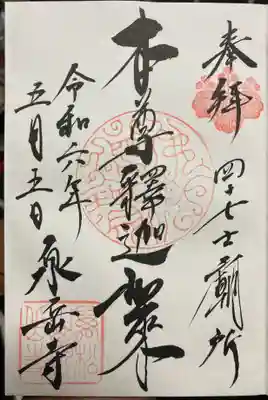 奉拝 四十七士廟所
本尊釋迦如来
令和六年
五月五日 泉岳寺